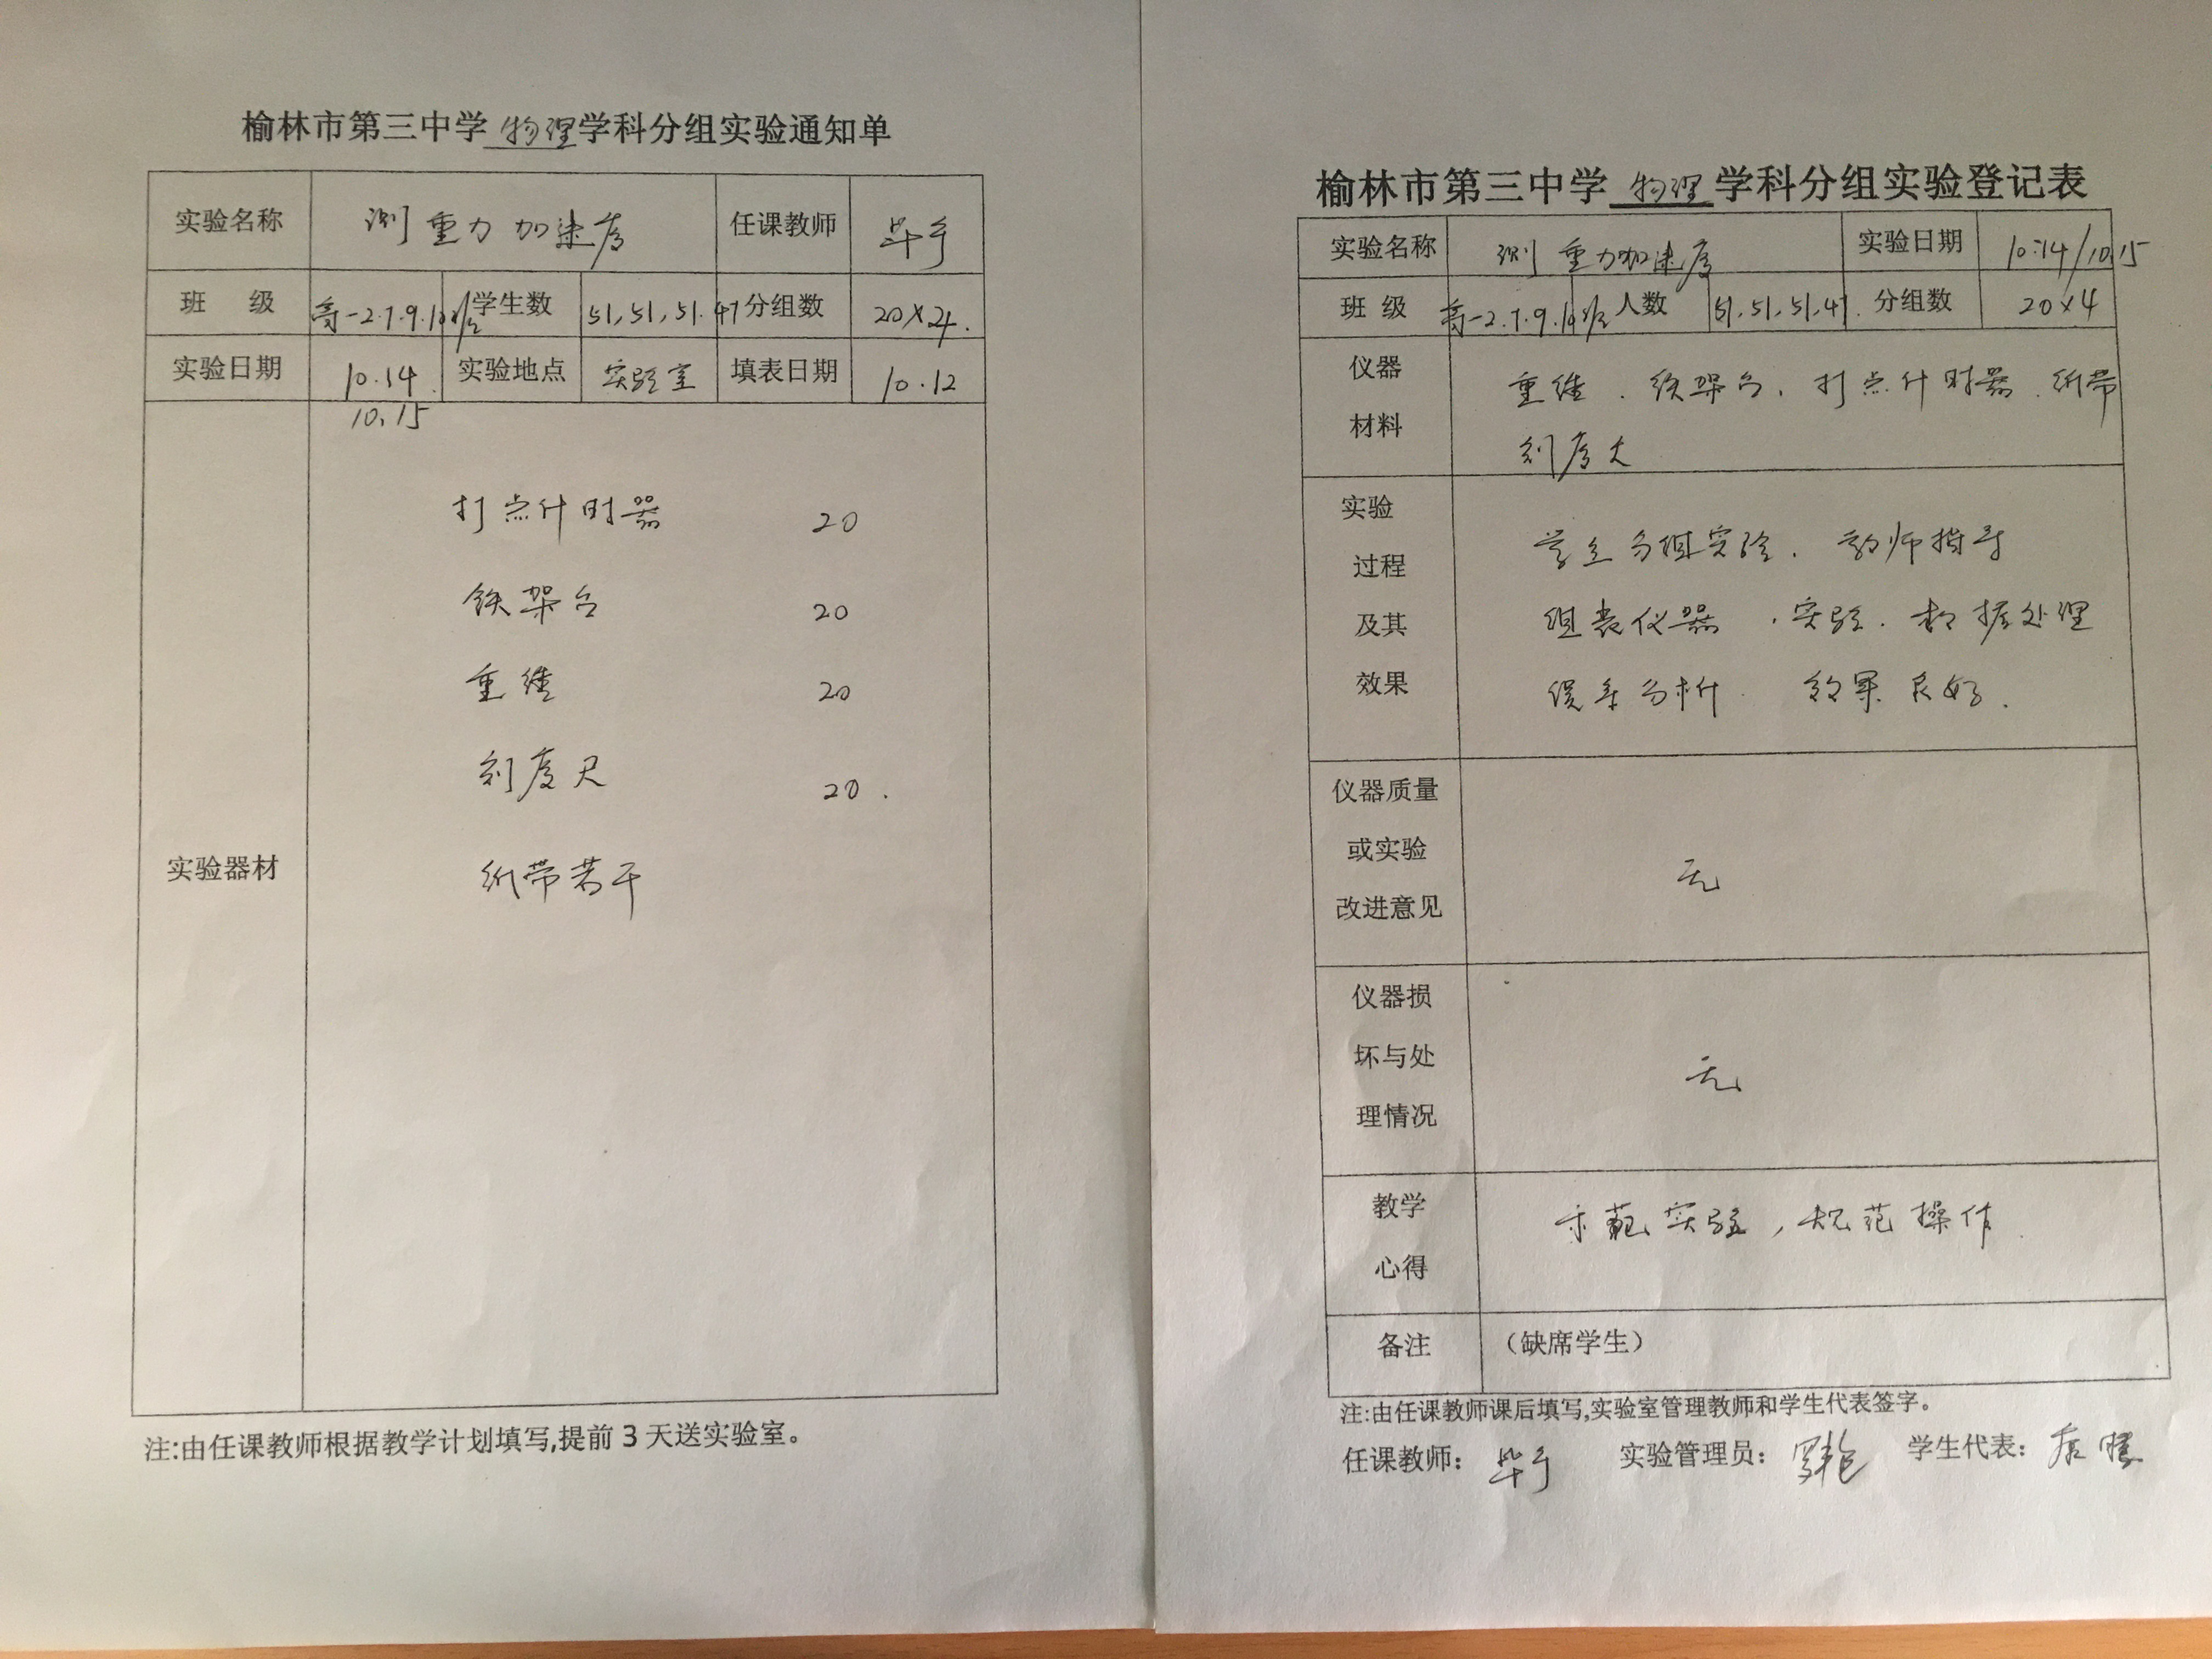 榆林市第三中学 物理 学科分组实验通知单
实验名称 测重力加速度 任课教师 毕于
班 级 高一2.7.9.10班 学生数 51,51,51.47 分组数 20×4.
实验日期 10.14 实验地点 实验室 填表日期 10.12
10.15
打点计时器 20
铁架台 20
重锤 20
刻度尺 20.
实验器材 纸带若干
注:由任课教师根据教学计划填写,提前3天送实验室。
榆林市第三中学 物理 学科分组实验登记表
实验名称 测重力加速度 实验日期 10.14/10.15
班 级 高一2.7.9.10班 人数 51.51,51,47. 分组数 20×4
仪器
材料
重锤.铁架台.打点计时器.纸带
刻度尺
实验
过程
及其
效果
学生分组实验. 教师指导
组装仪器.实验.数据处理
误差分析. 效果良好.
仪器质量
或实验
改进意见
无
仪器损
坏与处
理情况
无
教学
心得
示范实验,规范操作.
备注 (缺席学生)
注:由任课教师课后填写,实验室管理教师和学生代表签字。
任课教师: 毕于 实验管理员: 学生代表: